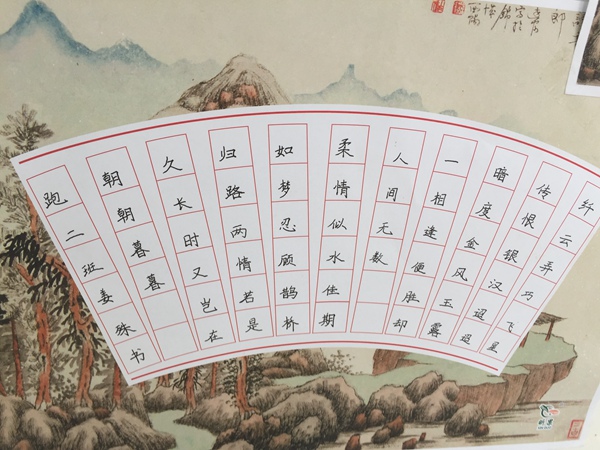 纤云弄巧飞星
传恨银汉迢迢
暗度金风玉露
一相逢便胜却
人间无数
柔情似水佳期
如梦忍顾鹊桥
归路两情若是
久长时又岂在
朝朝暮暮
跑二班姜书